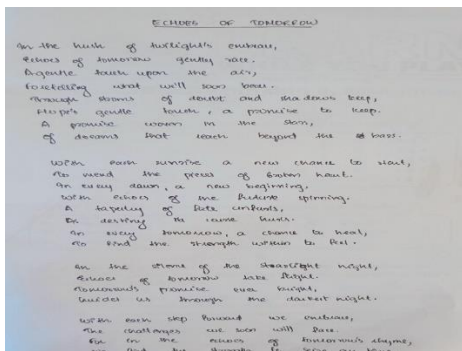 ECHOES OF TOMORROW
In the hush of twilight's embrace,
Echoes of tomorrow gently race.
A gentle touch upon the air,
Foretelling what we'll soon bear.
Through storms of doubt and shadows deep,
Hope's gentle touch, a promise to keep.
A promise woven in the stars,
of dreams that reach beyond the bars.
With each sunrise a new chance to start,
To mend the pieces of broken heart.
In every dawn, a new beginning,
With echoes of the future spinning.
A tapestry of fate unfurls,
destiny its
In every tomorrow, a chance to heal,
To find the strength within to feel.
In the of the starlight night,
Echoes of tomorrow take flight.
Tomorrow's promise ever bright,
Guides us through the darkest night.
With each step forward we embrace,
The challenges we soon will face.
For in the echoes of tomorrow's rhyme,